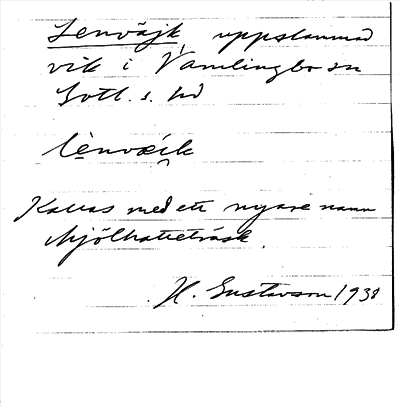 Lenväjk uppslammad
vik i Vamlingbo sn
Gotl. s. hd
lènvæik
Kallas med ett nyare namn
Mjölhatteträsk.
H. Gustavson 1938